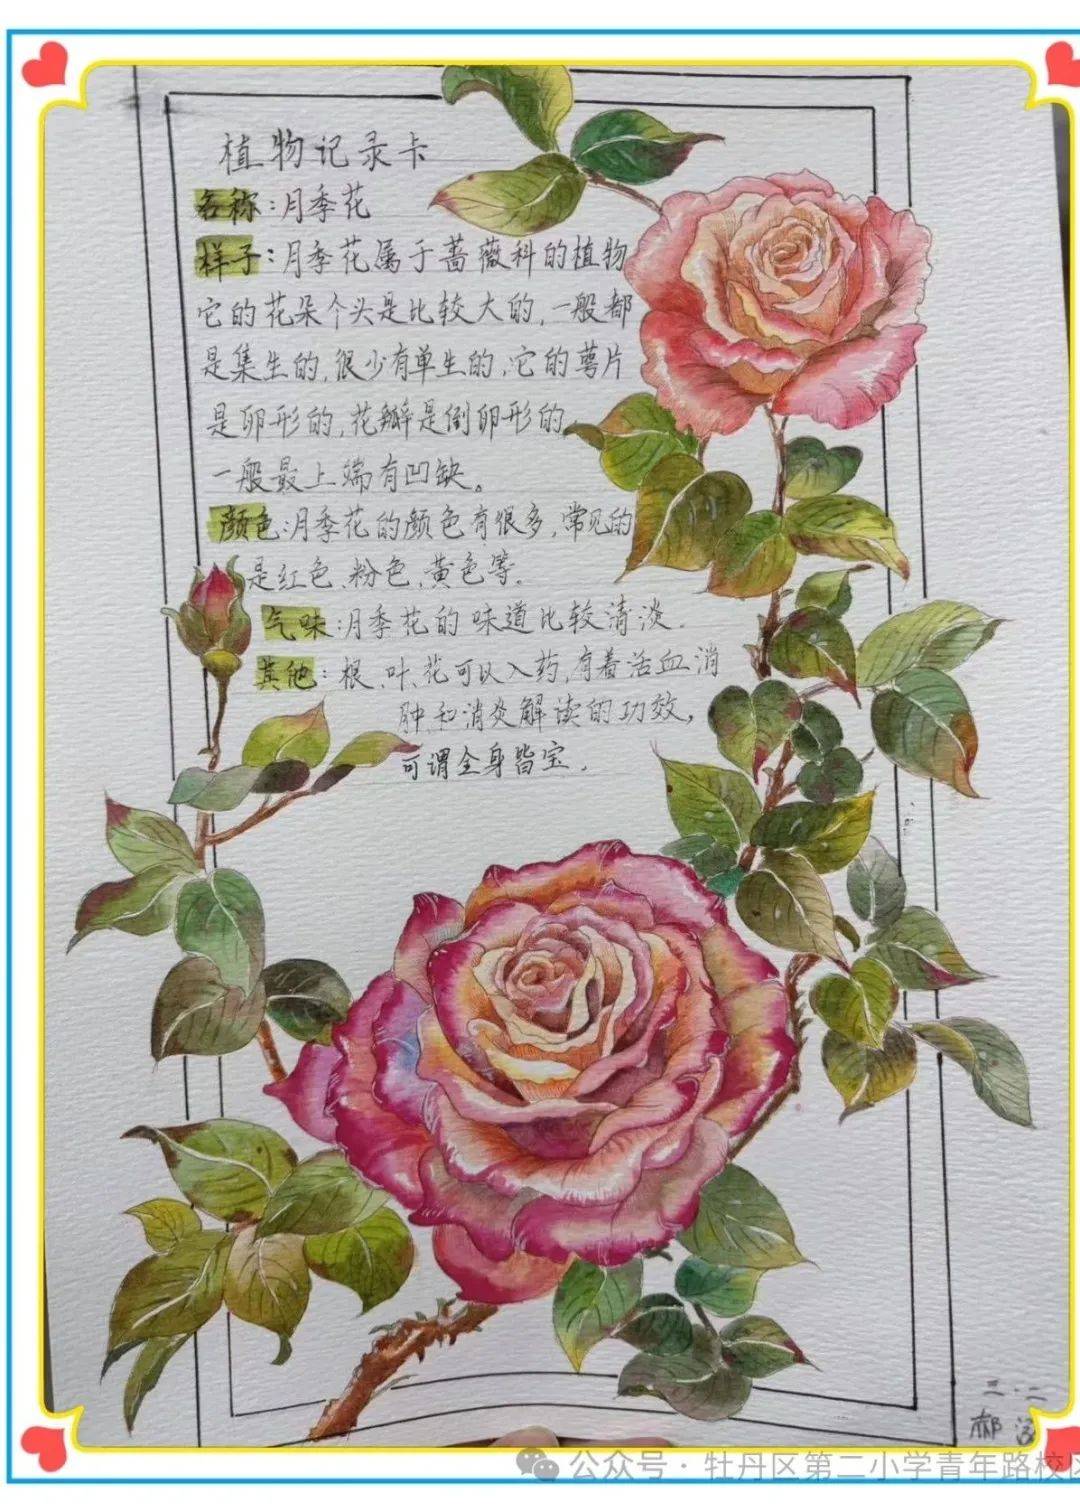 植物记录卡
名称:月季花
样子:月季花属于蔷薇科的植物
它的花朵个头是比较大的,一般都
是集生的,很少有单生的,它的萼片
是卵形的,花瓣是倒卵形的
一般最上端有凹缺。
颜色:月季花的颜色有很多,常见的
是红色、粉色、黄色等。
气味:月季花的味道比较清淡.
其他:根、叶、花可以入药,有着活血消
肿和消炎解读的功效,
可谓全身皆宝.
三·二
郝
公众号·牡丹区第二小学青年路校区